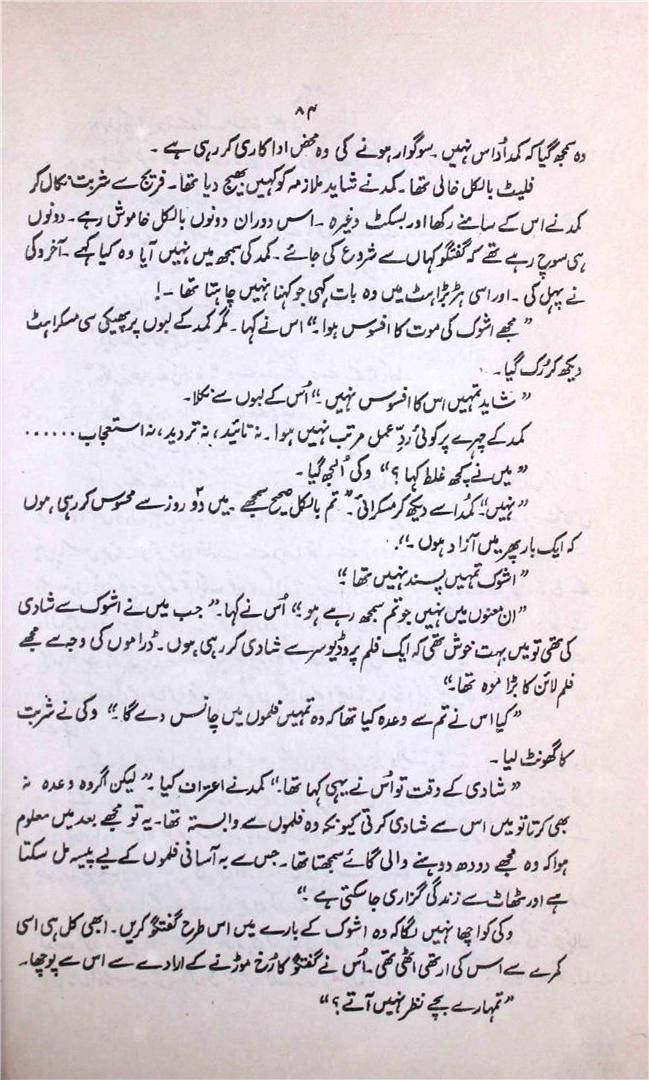 ۸۴
وہ سمجھ گیا کہ کمد اُداس نہیں ۔ سوگوار ہونے کی وہ محض اداکاری کر رہی ہے ۔
فلیٹ بالکل خالی تھا ۔ کمد نے شاید ملازمہ کو کہیں بھیج دیا تھا ۔ فریج سے شربت نکال کر
کمد نے اس کے سامنے رکھا اور بسکٹ وغیرہ ۔ اس دوران دونوں بالکل خاموش رہے ۔ دونوں
ہی سوچ رہے تھے کہ گفتگو کہاں سے شروع کی جائے ۔ کمد کی سمجھ میں نہیں آیا وہ کیا کہے ۔ آخر وکی
نے پہل کی ۔ اور اسی ہڑبڑاہٹ میں وہ بات کہی جو کہنا نہیں چاہتا تھا ۔!
” مجھے اشوک کی موت کا افسوس ہوا ۔“ اس نے کہا ۔ مگر کمد کے لبوں پر پھیکی سی مسکراہٹ
دیکھ کر رُک گیا ۔
” شاید تمہیں اس کا افسوس نہیں ۔“ اُس کے لبوں سے نکلا ۔
کمد کے چہرے پر کوئی ردِّ عمل مرتب نہیں ہوا ۔ نہ تائید ، نہ تردید ، نہ استعجاب ......
” میں نے کچھ غلط کہا ؟“ وکی اُلجھ گیا ۔
” نہیں“ کمد اُسے دیکھ کر مسکرائی ” تم بالکل صحیح سمجھے ۔ میں دو روز سے محسوس کر رہی ہوں
کہ ایک بار پھر میں آزاد ہوں ۔“
” اشوک تمہیں پسند نہیں تھا “
” ان معنوں میں نہیں جو تم سمجھ رہے ہو “ اُس نے کہا ۔ ” جب میں نے اشوک سے شادی
کی تھی تو میں بہت خوش تھی کہ ایک فلم پروڈیوسر سے شادی کر رہی ہوں ۔ ڈراموں کی وجہ سے مجھے
فلم لائن کا بڑا موہ تھا ۔“
” کیا اس نے تم سے وعدہ کیا تھا کہ وہ تمہیں فلموں میں چانس دے گا ۔“ وکی نے شربت
کا گھونٹ لیا ۔
” شادی کے وقت تو اُس نے یہی کہا تھا ۔“ کمد نے اعتراف کیا ۔ ” لیکن اگر وہ وعدہ نہ
بھی کرتا تو میں اس سے شادی کرتی کیونکہ وہ فلموں سے وابستہ تھا ۔ یہ تو مجھے بعد میں معلوم
ہوا کہ وہ مجھے دودھ دوہنے والی گائے سمجھتا تھا ۔ جس سے بہ آسانی فلموں کے لیے پیسہ مل سکتا
ہے اور ٹھاٹ سے زندگی گزاری جا سکتی ہے ۔“
وکی کو اچھا نہیں لگا کہ وہ اشوک کے بارے میں اس طرح گفتگو کریں ۔ ابھی کل ہی اسی
کمرے سے اس کی ارتھی اٹھی تھی ۔ اُس نے گفتگو کا رُخ موڑنے کے ارادے سے اس سے پوچھا ۔
” تمہارے بچے نظر نہیں آتے ؟“